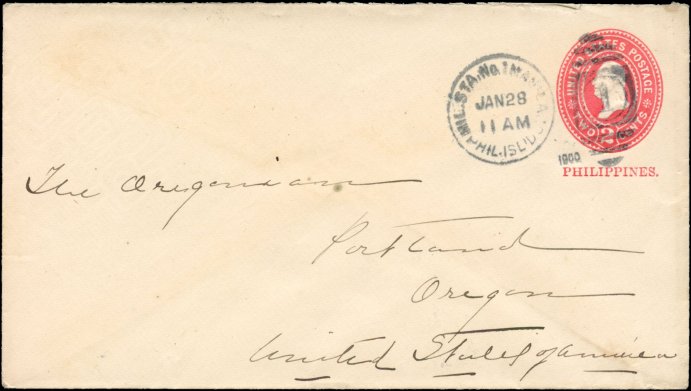 UNITED STATES POSTAGE
TWO 2 CENTS
MIL. STA. No. 1 MANILA
JAN 28
11 AM
PHIL. ISL'DS
1900
PHILIPPINES.
The Oregonian
Portland
Oregon
United States of America